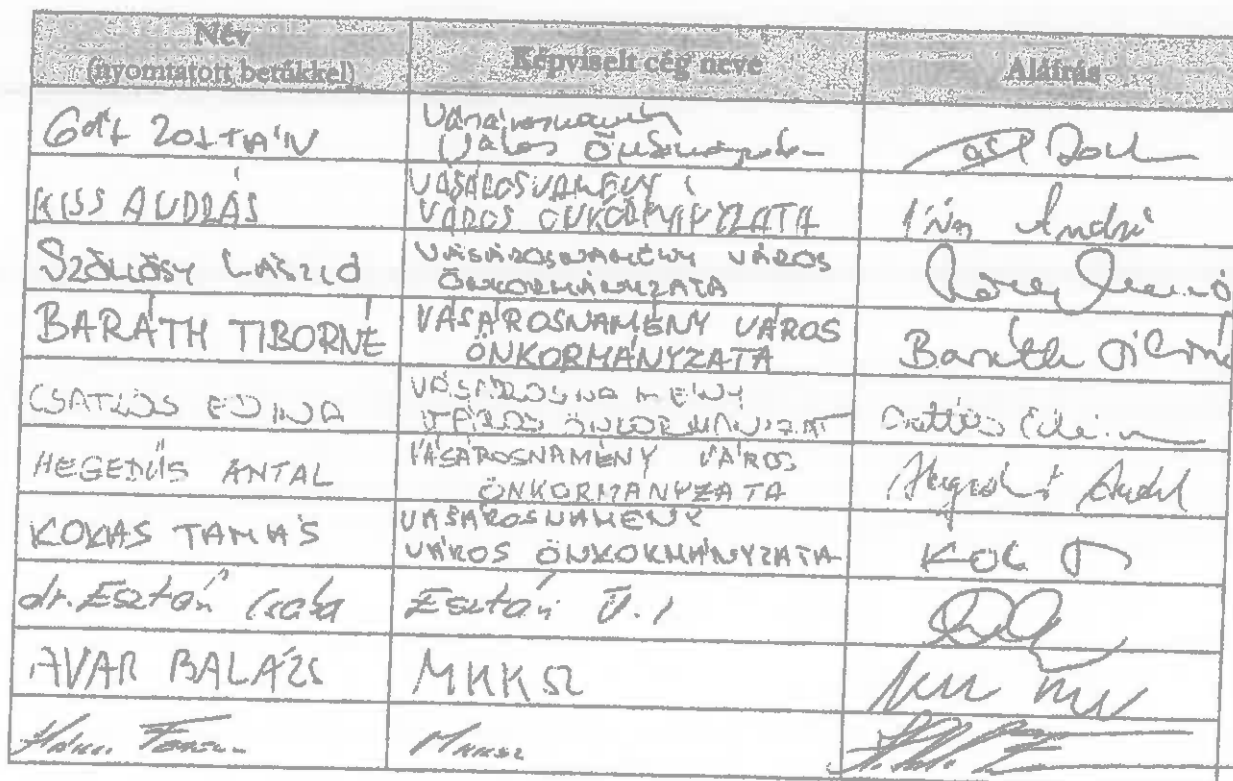 Név
(nyomtatott betűkkel)
Képviselt cég neve
Aláírás
Gál ZOLTÁN
Város Önkormányzata
KISS ANDRÁS
VÁSÁROSNAMÉNY
VÁROS ÖNKORMÁNYZATA
András
László
VÁSÁROSNAMÉNY VÁROS
ÖNKORMÁNYZATA
BARÁTH TIBORNÉ
VÁSÁROSNAMÉNY VÁROS
ÖNKORMÁNYZATA
Baráth Tiborné
CSATLÓS EDINA
VÁSÁROSNAMÉNY
VÁROS ÖNKORMÁNYZAT
Csatlós Edina
HEGEDŰS ANTAL
VÁSÁROSNAMÉNY VÁROS
ÖNKORMÁNYZATA
Hegedűs Antal
KOKAS TAMÁS
VÁSÁROSNAMÉNY
VÁROS ÖNKORMÁNYZATA
Kok
dr. Esztári Csaba
Esztári Ü.I
AVAR BALÁZS
MKKSZ
MKKSZ